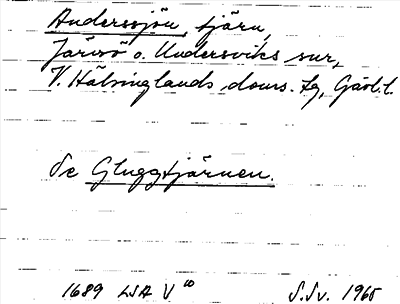 Anderssjön, tjärn,
Järvsö o. Undersviks snr,
V. Hälsinglands doms. tg, Gävl. l.
Se Gluggtjärnen.
1689 LSA V 10 S.Sv. 1965